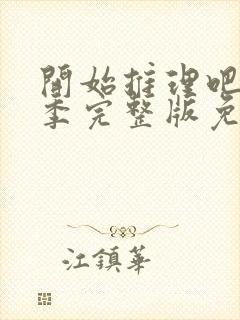 開始推理吧
季完整版免
江鎮華